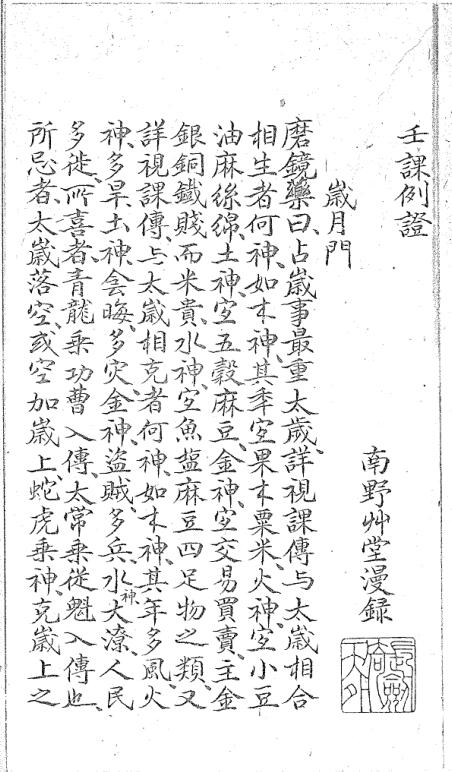 壬課例證
南野艸堂漫錄
歲月門
磨鏡藥曰、占歲事最重太歲、詳視課傳与太歲相合
相生者何神、如木神其季宐果木粟米、火神、宐小豆
油麻絲綿、土神、宐五穀麻豆、金神、宐交易買賣、主金
銀銅鐵賤而米貴、水神、宐魚盐麻豆四足物之類、又
詳視課傳、与太歲相克者何神如木神、其年多風、火
神、多旱、土神、雲晦、多灾、金神、盜賊、多兵、水神大潦、人民
多徙、所喜者、青龍乘功曹入傳、太常乘從魁入傳也、
所忌者、太歲落空、或空加歲上、蛇虎乘神、克歲上之